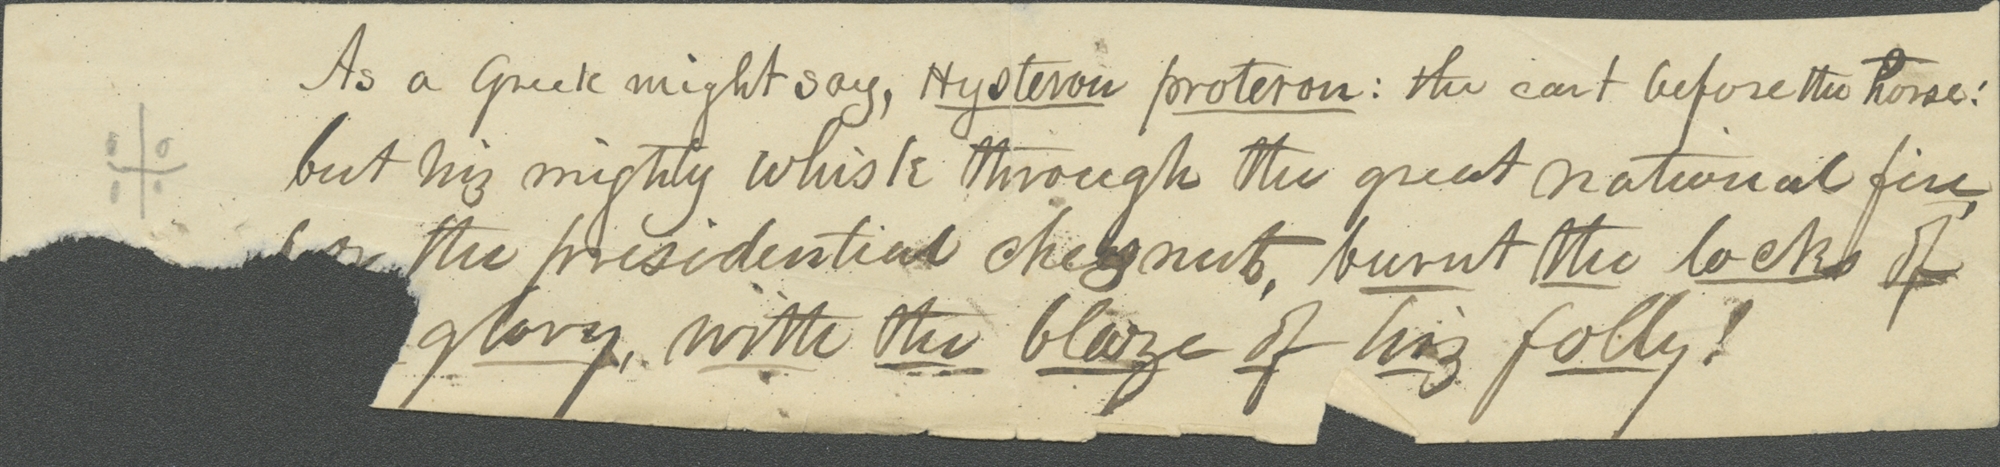 As a Greek might say, Hysteron proteron: the cart before the horse:
but his mighty whisk through the great national fire,
the presidential chesnuts, burnt the locks of
glory, with the blaze of his folly!